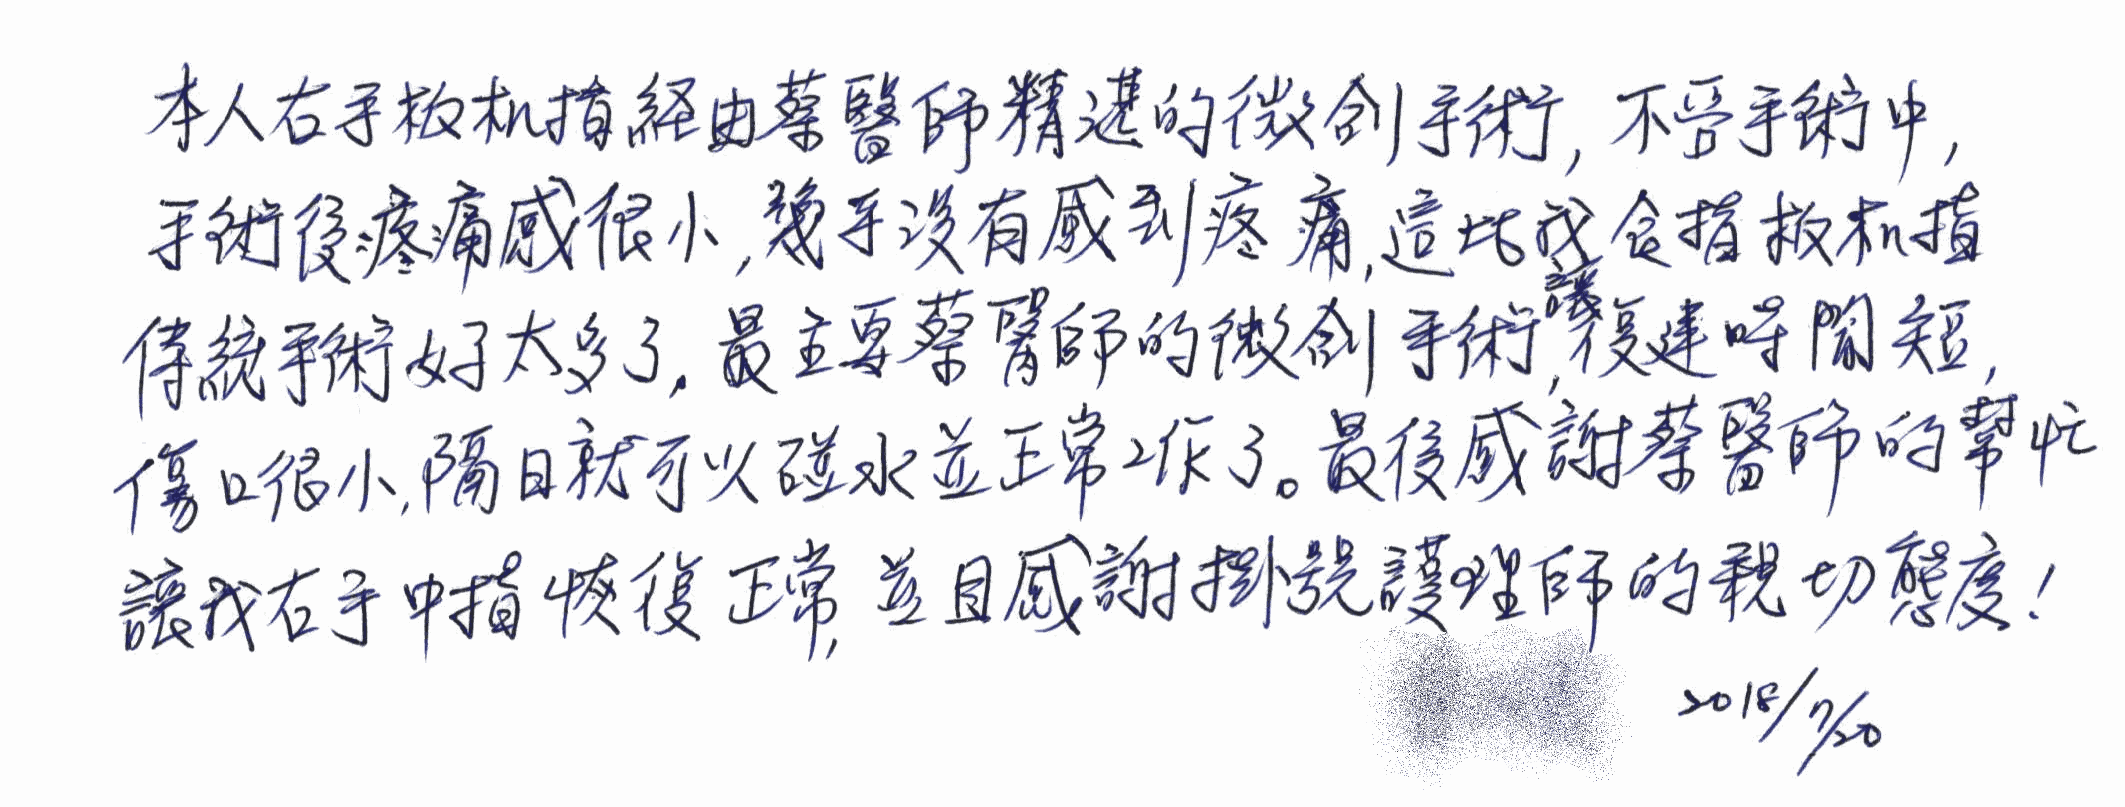 本人右手板机指経由蔡醫師精湛的微創手術, 不管手術中,
手術後疼痛感很小, 幾乎沒有感到疼痛, 這比我食指板机指
傳統手術好太多了. 最主要蔡醫師的微創手術, 讓復建時間短,
傷口很小, 隔日就可以碰水並正常工作了。最後感謝蔡醫師的幫忙
讓我右手中指恢復正常, 並且感謝掛號護理師的親切態度!
2018/7/20